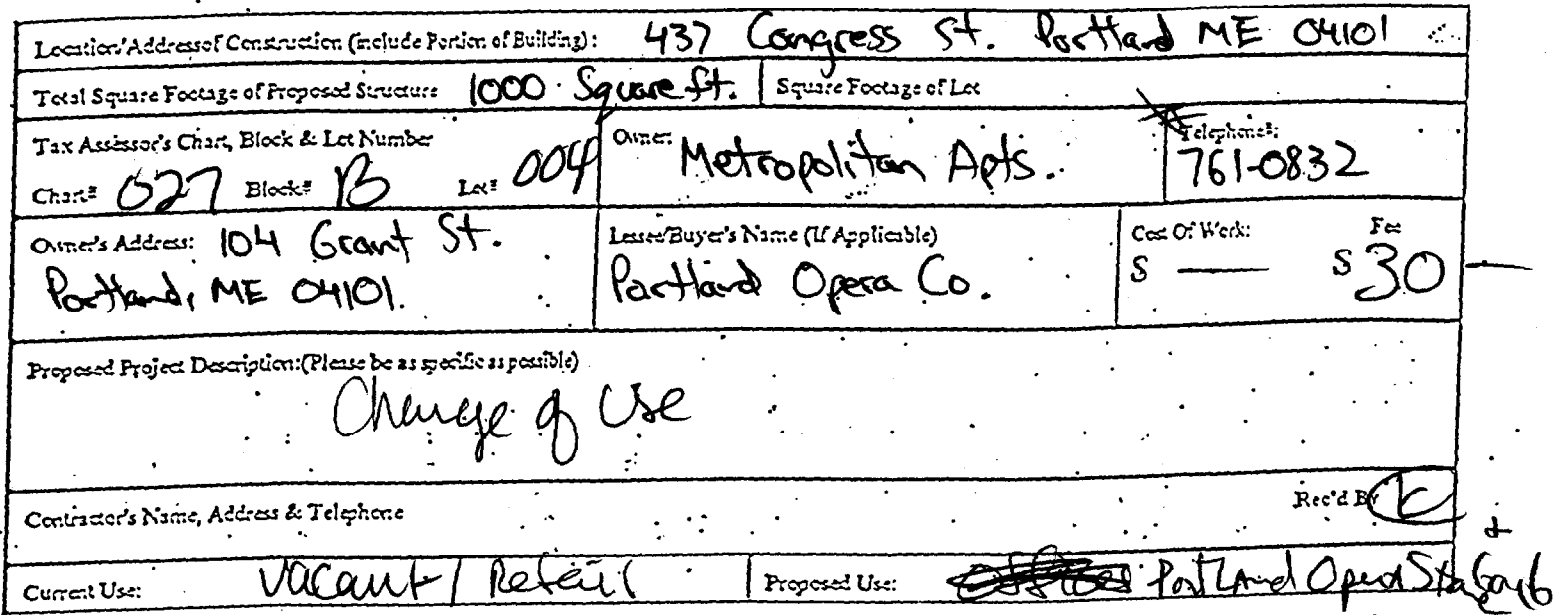 Location/Address of Construction (include Portion of Building): 437 Congress St. Portland ME 04101
Total Square Footage of Proposed Structure 1000 Square ft. Square Footage of Lot
Tax Assessor's Chart, Block & Lot Number
Chart# 027 Block# B Lot# 004
Owner: Metropolitan Apts.
Telephone#:
761-0832
Owner's Address: 104 Grant St.
Portland, ME 04101.
Lessee/Buyer's Name (If Applicable)
Portland Opera Co.
Cost Of Work: Fee
$ — $ 30
Proposed Project Description:(Please be as specific as possible)
Change of Use
Contractor's Name, Address & Telephone Rec'd By
Current Use: Vacant / Retail Proposed Use: Portland Opera